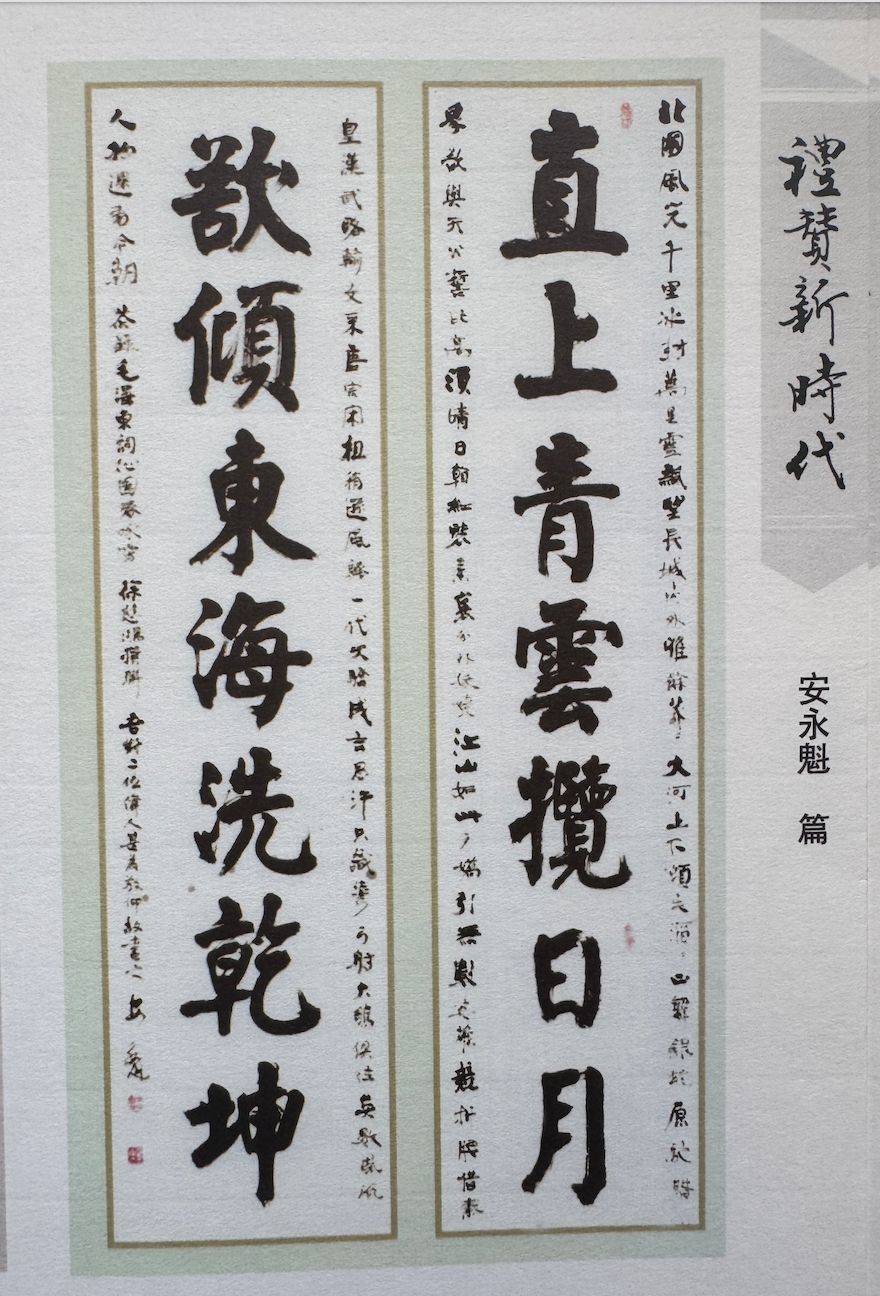 禮贊新時代
安永魁 篇
北國風光千里冰封萬里雪飄望長城內外惟餘莽莽大河上下頓失滔滔山舞銀蛇原馳蠟
直上青雲攬日月
象欲與天公試比高須晴日看紅裝素裹分外妖嬈江山如此多嬌引無數英雄競折腰惜秦
皇漢武略輸文采唐宗宋祖稍遜風騷一代天驕成吉思汗只識彎弓射大鵰俱往矣數風流
欲傾東海洗乾坤
人物還看今朝 恭錄毛澤東詞沁園春咏雪 徐悲鴻撰聯 吾對二位偉人甚為敬仰故書之 安永魁